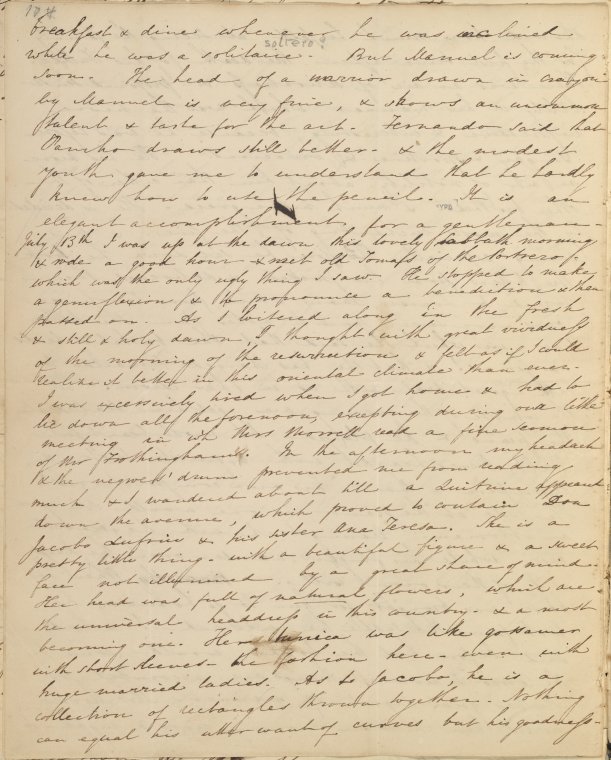 104
breakfast & dine whenever he was inclined
soltero?
while he was a solitaire. But Manuel is coming
soon. The head of a warrior drawn in crayon
by Manuel is very fine, & shows an uncommon
talent & taste for the art. Fernando said that
Pancho draws still better. & the modest
youth gave me to understand that he hardly
knew how to use the pencil. It is an
elegant accomplishment for a gentleman
July 13th I was up at the dawn this lovely sabbath morning
& rode a good hour & met old Tomaso of the Potrero,
which was the only ugly thing I saw. He stopped to make
a genuflexion & to pronounce a benediction & then
passed on. As I loitered along in the fresh
& still & holy dawn, I thought with great vividness
of the morning of the resurrection & felt as if I could
realize it better in this oriental climate than ever.
I was excessively tired when I got home & had to
lie down all the forenoon, excepting during our little
meeting in wh Mrs Morrell read a fine sermon
of Mr Frothingham's. In the afternoon my headach
& the negroes' drum prevented me from reading
much & I wandered about till a Quitrin appeared
down the avenue, which proved to contain Don
Jacobo & his sister Ana Teresa. She is a
pretty little thing. with a beautiful figure & a sweet
face not illumined by a great share of mind.
Her head was full of natural flowers, which are
the universal headdress in this country. & a most
becoming one. Her tunica was like gossamer
with short sleeves - the fashion here - even with
huge married ladies. As to Jacobo, he is a
collection of rectangles thrown together. Nothing
can equal his utter want of curves but his goodness.